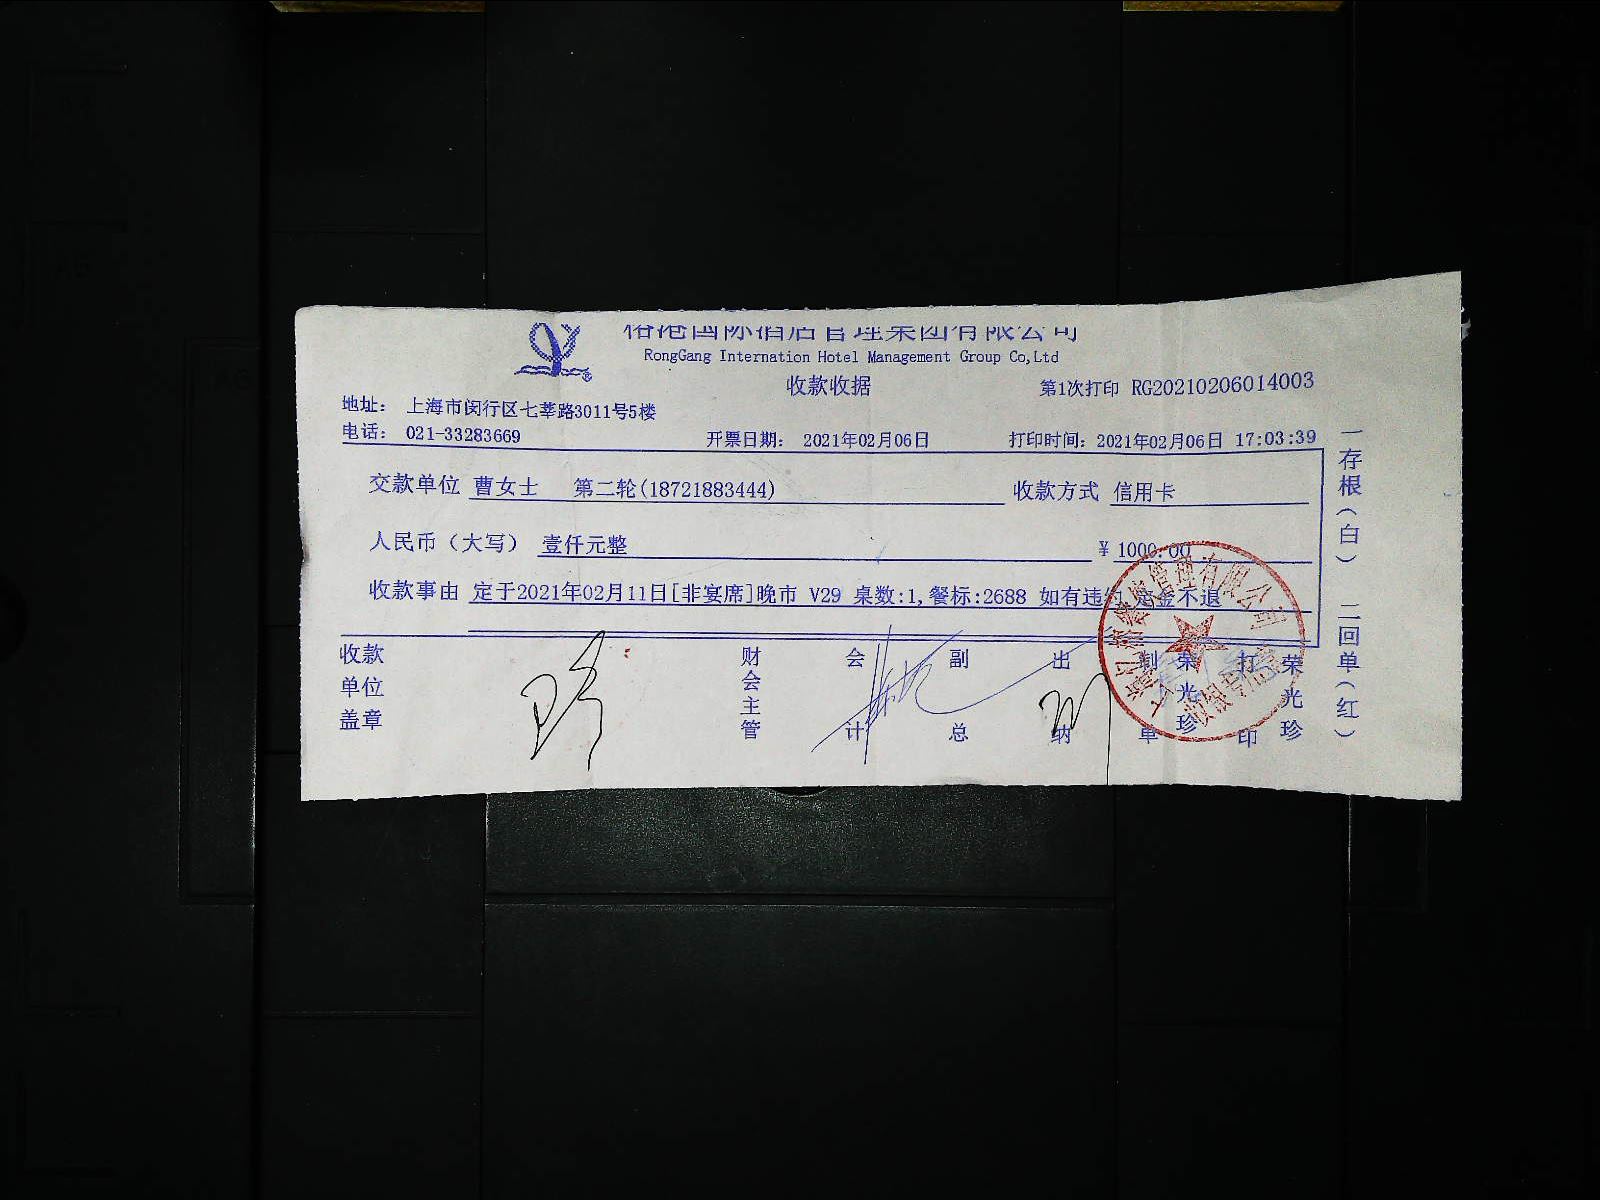 榕港国际酒店管理集团有限公司
RongGang Internation Hotel Management Group Co,Ltd
收款收据
第1次打印 RG20210206014003
地址： 上海市闵行区七莘路3011号5楼
电话： 021-33283669
开票日期： 2021年02月06日
打印时间：2021年02月06日 17:03:39
交款单位 曹女士 第二轮(18721883444)
收款方式 信用卡
人民币（大写） 壹仟元整
¥ 1000.00
收款事由 定于2021年02月11日[非宴席]晚市 V29 桌数:1,餐标:2688 如有违约 定金不退
收款单位盖章
财会主管
会计
副总
出纳
制单
荣光珍
打印
荣光珍
一存根（白） 二回单（红）
管理有限公司